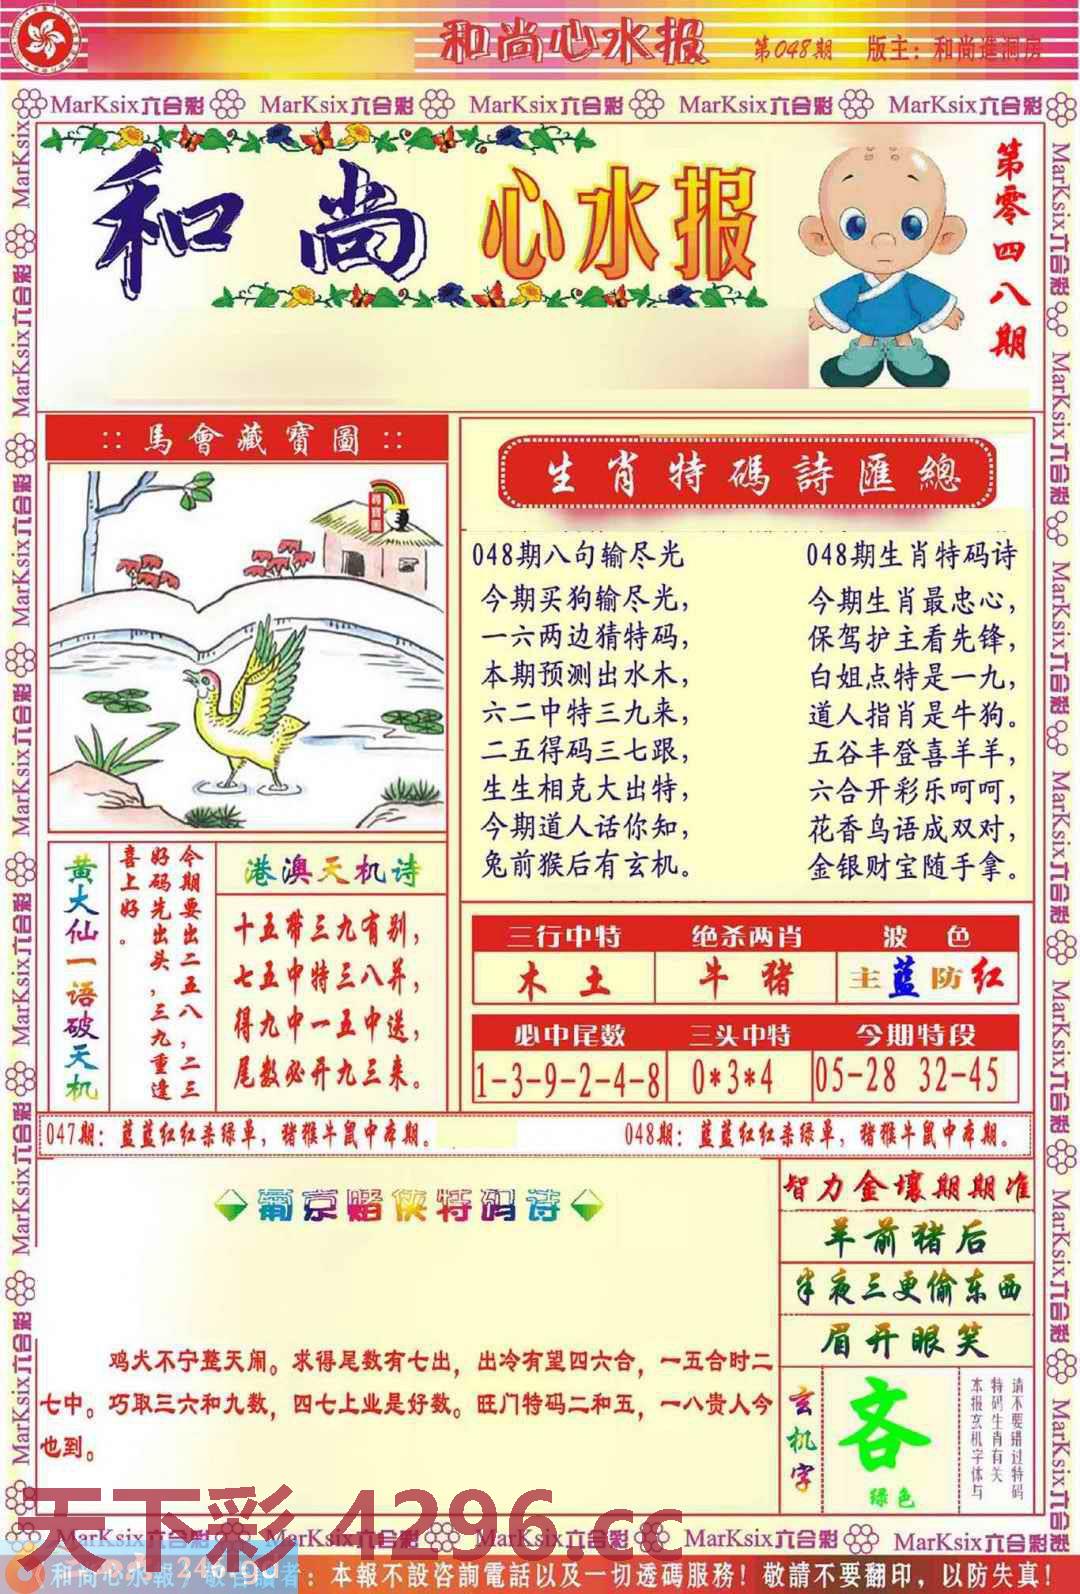 和尚心水报
第048期
版主：和尚進洞房
MarKsix六合彩 MarKsix六合彩 MarKsix六合彩 MarKsix六合彩 MarKsix六合彩
和尚心水报
第零四八期
::馬會藏寶圖::
尋寶圖
生肖特碼詩匯總
048期八句输尽光
今期买狗输尽光，
一六两边猜特码，
本期预测出水木，
六二中特三九来，
二五得码三七跟，
生生相克大出特，
今期道人话你知，
兔前猴后有玄机。
048期生肖特码诗
今期生肖最忠心，
保驾护主看先锋，
白姐点特是一九，
道人指肖是牛狗。
五谷丰登喜羊羊，
六合开彩乐呵呵，
花香鸟语成双对，
金银财宝随手拿。
黄大仙一语破天机
今期要出二五八，二三
好码先出头，三九重逢
喜上好。
港澳天机诗
十五带三九有别，
七五中特三八并，
得九中一五中送，
尾数必开九三来。
三行中特 绝杀两肖 波色
木土 牛猪 主蓝防红
必中尾数 三头中特 今期特段
1-3-9-2-4-8 0*3*4 05-28 32-45
047期：蓝蓝红红杀绿单，猪猴牛鼠中本期。
048期：蓝蓝红红杀绿单，猪猴牛鼠中本期。
葡京赌侠特码诗
鸡犬不宁整天闹。求得尾数有七出，出冷有望四六合，一五合时二
七中。巧取三六和九数，四七上业是好数。旺门特码二和五，一八贵人今
也到。
智力金壤期期准
羊前猪后
半夜三更偷东西
眉开眼笑
玄机字
吝
绿色
请不要错过特码
特码生肖有关
本报玄机字体与
天下彩 4296.cc
MarKsix六合彩 MarKsix六合彩 MarKsix六合彩 MarKsix六合彩 MarKsix六合彩
和尚心水報，敬告讀者：本報不設咨詢電話以及一切透碼服務！敬請不要翻印，以防失真！
246.gd